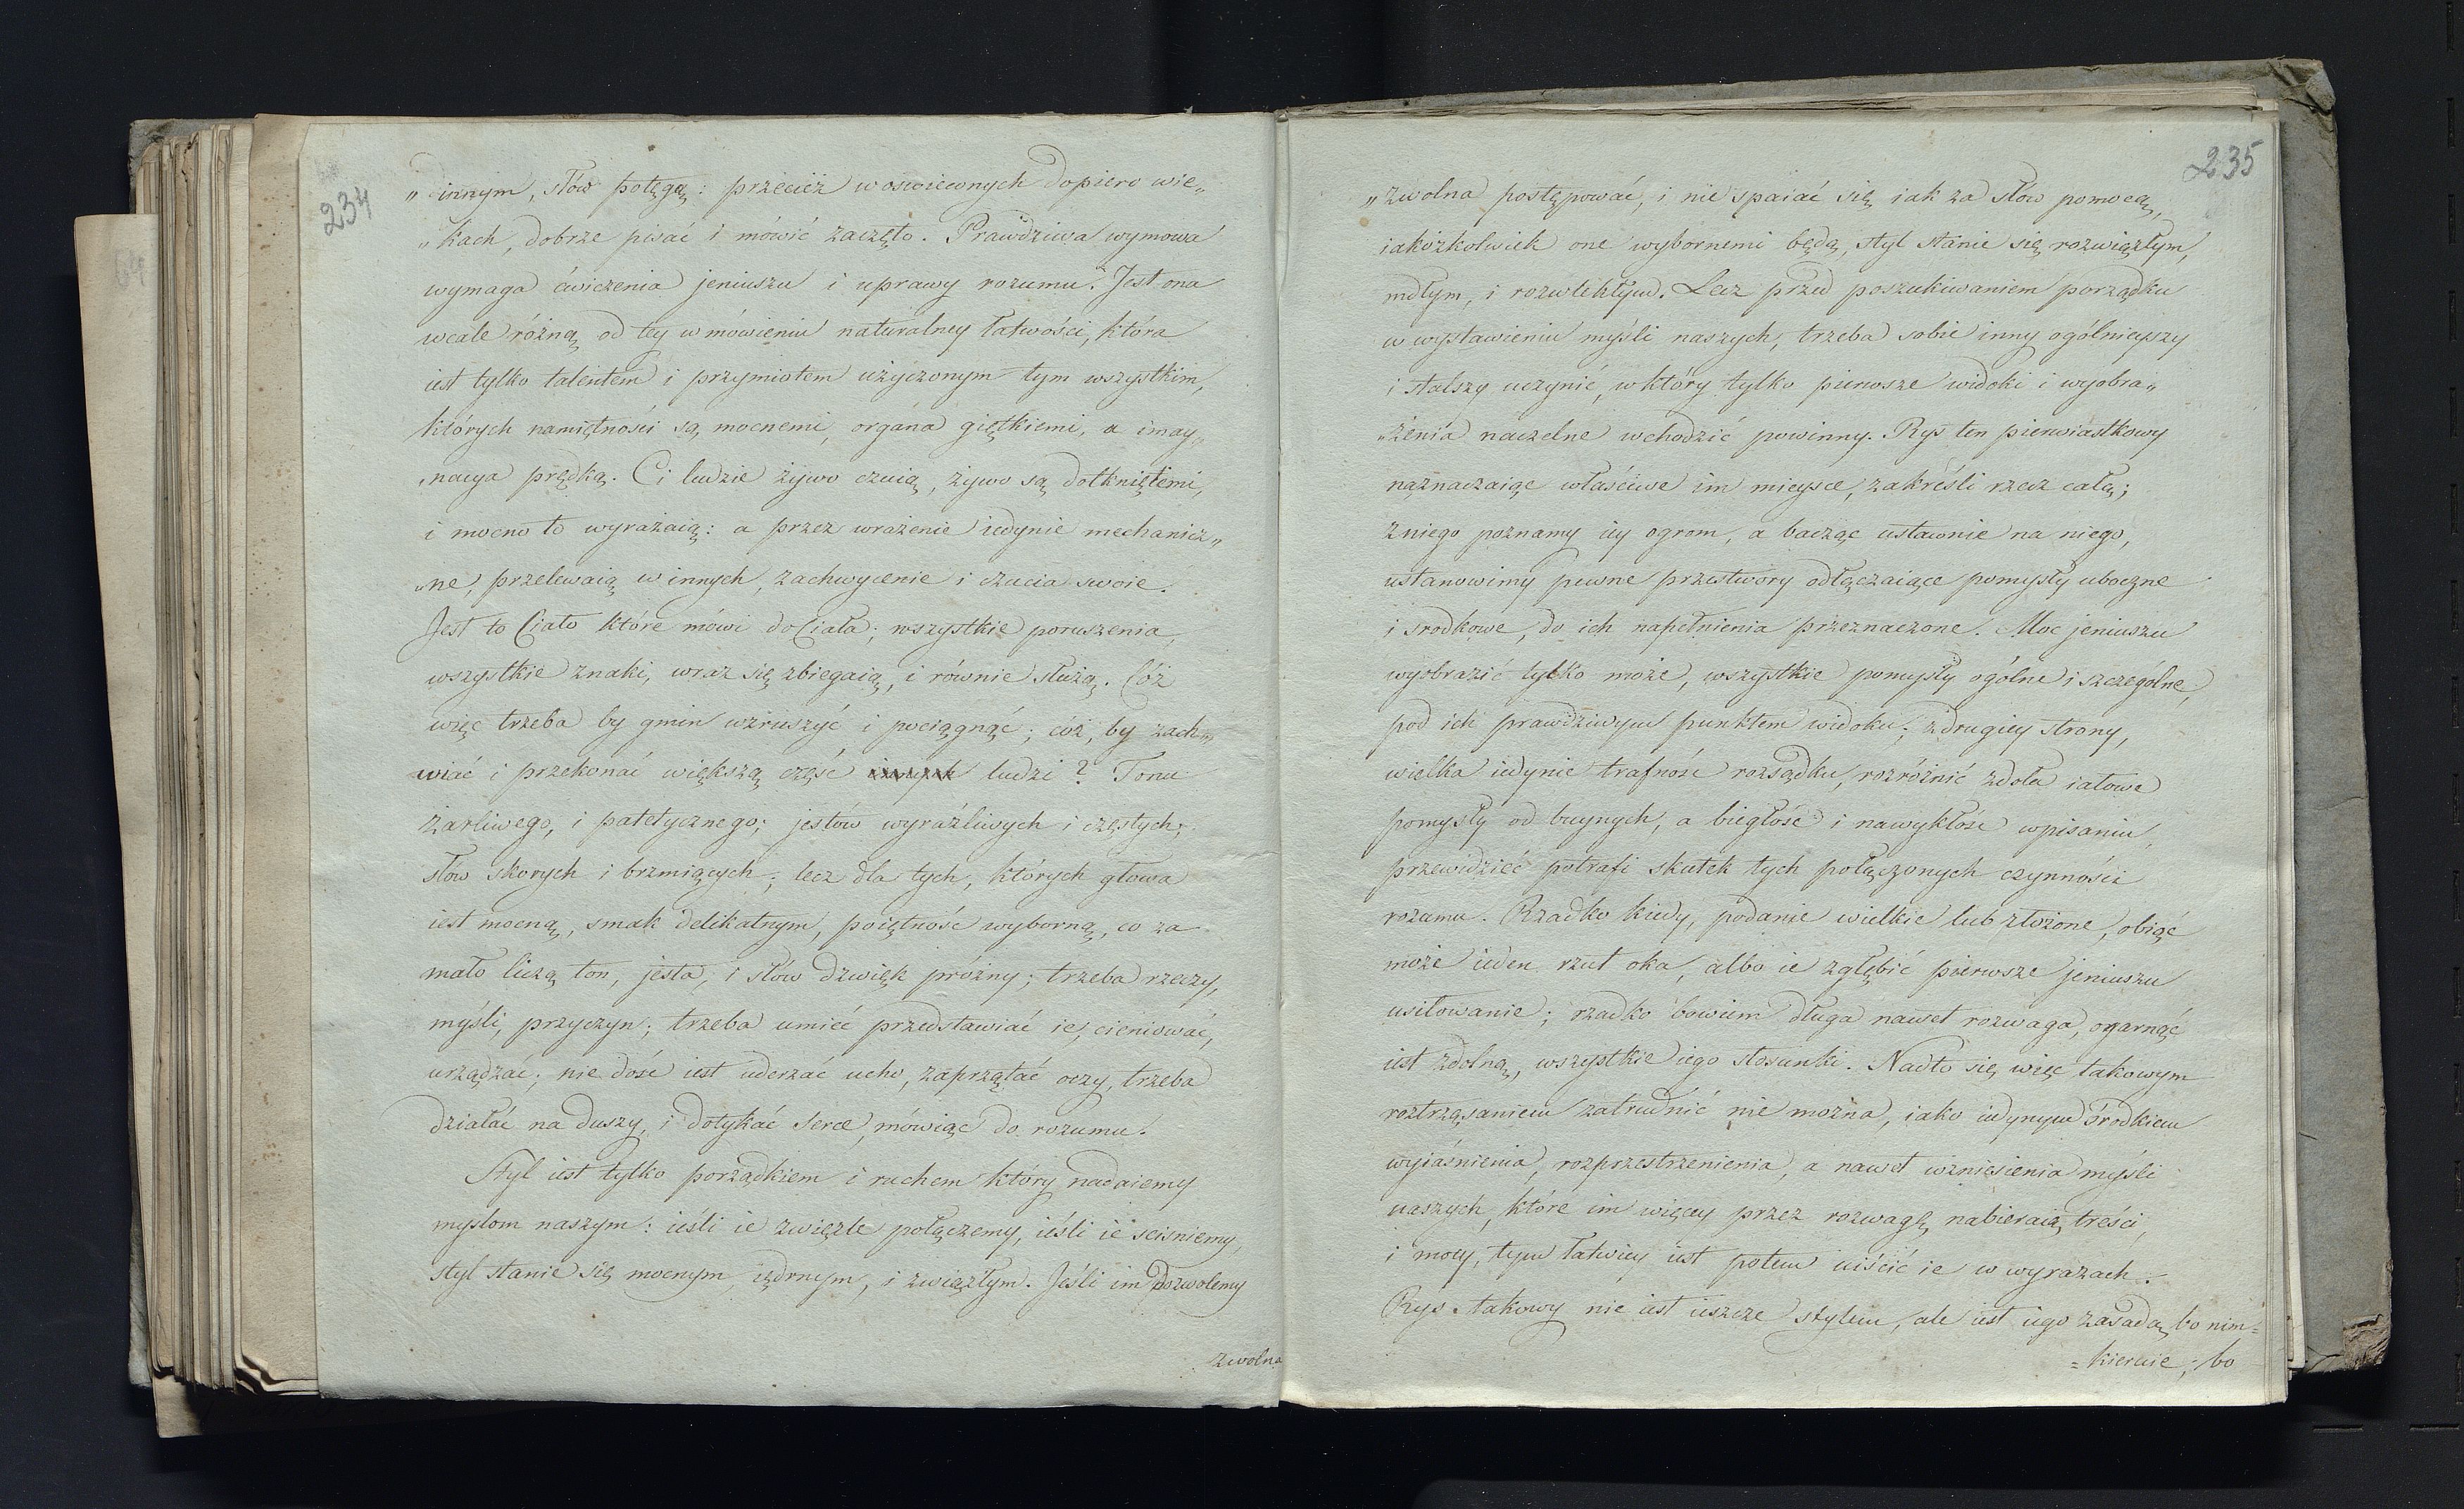 234
„innym, słów potęgą: przecież w oswieconych dopiero wie„
„kach, dobrze pisać i mówić zaczęto. Prawdziwa wymowa
wymaga ćwiczenia jeniuszu i uprawy rozumu. Jest ona
wcale różną od tey w mówieniu naturalney łatwości, która
iest tylko talentem i przymiotem użyczonym tym wszystkim,
których namiętności są mocnemi, organa giętkiemi, a imay„
„nacya prędką. Ci ludzie żywo czuią, żywo są dotkniętemi,
i mocno to wyrażaią: a przez wrażenie iedynie mechanicz„
„ne, przelewaią w innych, zachwycenie i czucia swoie.
Jest to Ciało które mówi do Ciała; wszystkie poruszenia,
wszystkie znaki, wraz się zbiegaią, i równie służą. Cóż
więc trzeba by gmin wzruszyć i pociągnąć; cóż, by zach„
wiać i przekonać większą część ludzi? Tonu
żarliwego, i patetycznego; jestów wyraźliwych i częstych;
słow skorych i brzmiących; lecz dla tych, których głowa
iest mocną, smak delikatnym, poiętność wyborną, co za
mało liczą ton, jesta, i słów dzwięk próżny; trzeba rzeczy,
myśli, przyczyn; trzeba umieć przedstawiać ie, cieniować,
urządzać; nie dość iest uderzać ucho, zaprzątać oczy, trzeba
działać na duszy, i dotykać serce, mówiąc do rozumu.
Styl iest tylko porządkiem i ruchem który nadaiemy
myslom naszym: ieśli ie zwięzle połączemy, ieśli ie scisniemy,
styl stanie się mocnym, iędrnym, i zwięzłym. Jeśli im dozwolemy
zwolna
235
„zwolna postępować, i nie spaiać się iak za słow pomocą,
iakożkolwiek one wybornemi będą, styl stanie się rozwięzłym,
mdłym, i rozwlekłym. Lecz przed poszukiwaniem porządku
w wystawieniu myśli naszych, trzeba sobie inny ogólnieyszy
i stalszy uczynić, w który tylko pierwsze widoki i wyobra„
„żenia naczelne wchodzić powinny. Rys ten pierwiastkowy
naznaczaiąc właściwe im mieysce, zakreśli rzecz całą;
z niego poznamy iey ogrom, a bacząc ustawnie na niego,
ustanowimy pewne przestwory odłączaiące pomysły uboczne
i srodkowe, do ich napełnienia przeznaczone. Moc jeniuszu
wyobrazić tylko może, wszystkie pomysły ogólne i szczególne,
pod ich prawdziwym punktem widoku; z drugiey strony,
wielka iedynie trafność rozsądku, rozróżnić zdoła iałowe
pomysły od buynych, a biegłość i nawykłość w pisaniu,
przewidzieć potrafi skutek tych połączonych czynności
rozumu. Rzadko kiedy, podanie wielkie lub złożone, obiąć
może ieden rzut oka, albo ie zgłębić pierwsze jeniuszu
usiłowanie; rzadko bowiem długa nawet rozwaga, ogarnąć
iest zdolną, wszystkie iego stosunki. Nadto się więc takowym
roztrząsaniem zatrudnić nie można, iako iedynym środkiem
wyiaśnienia, rozprzestrzenienia, a nawet wzniesienia myśli
naszych, które im więcey przez rozwagę nabieraią treści,
i mocy, tym łatwiey iest potem iiścić ie w wyrazach.
Rys takowy nie iest ieszcze stylem, ale iest iego zasadą, bo nim=
=kieruie; bo